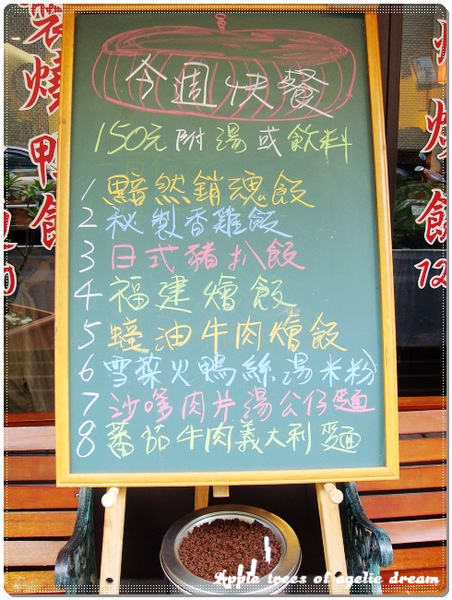 今週快餐
150元附湯或飲料
1 黯然銷魂飯
2 秘製香雞飯
3 日式豬扒飯
4 福建燴飯
5 蠔油牛肉燴飯
6 雪菜火鴨絲湯米粉
7 沙嗲肉片湯公仔麵
8 蕃茄牛肉義大利麵
燒鴨飯
燒飯
12
Apple trees of agelic dream